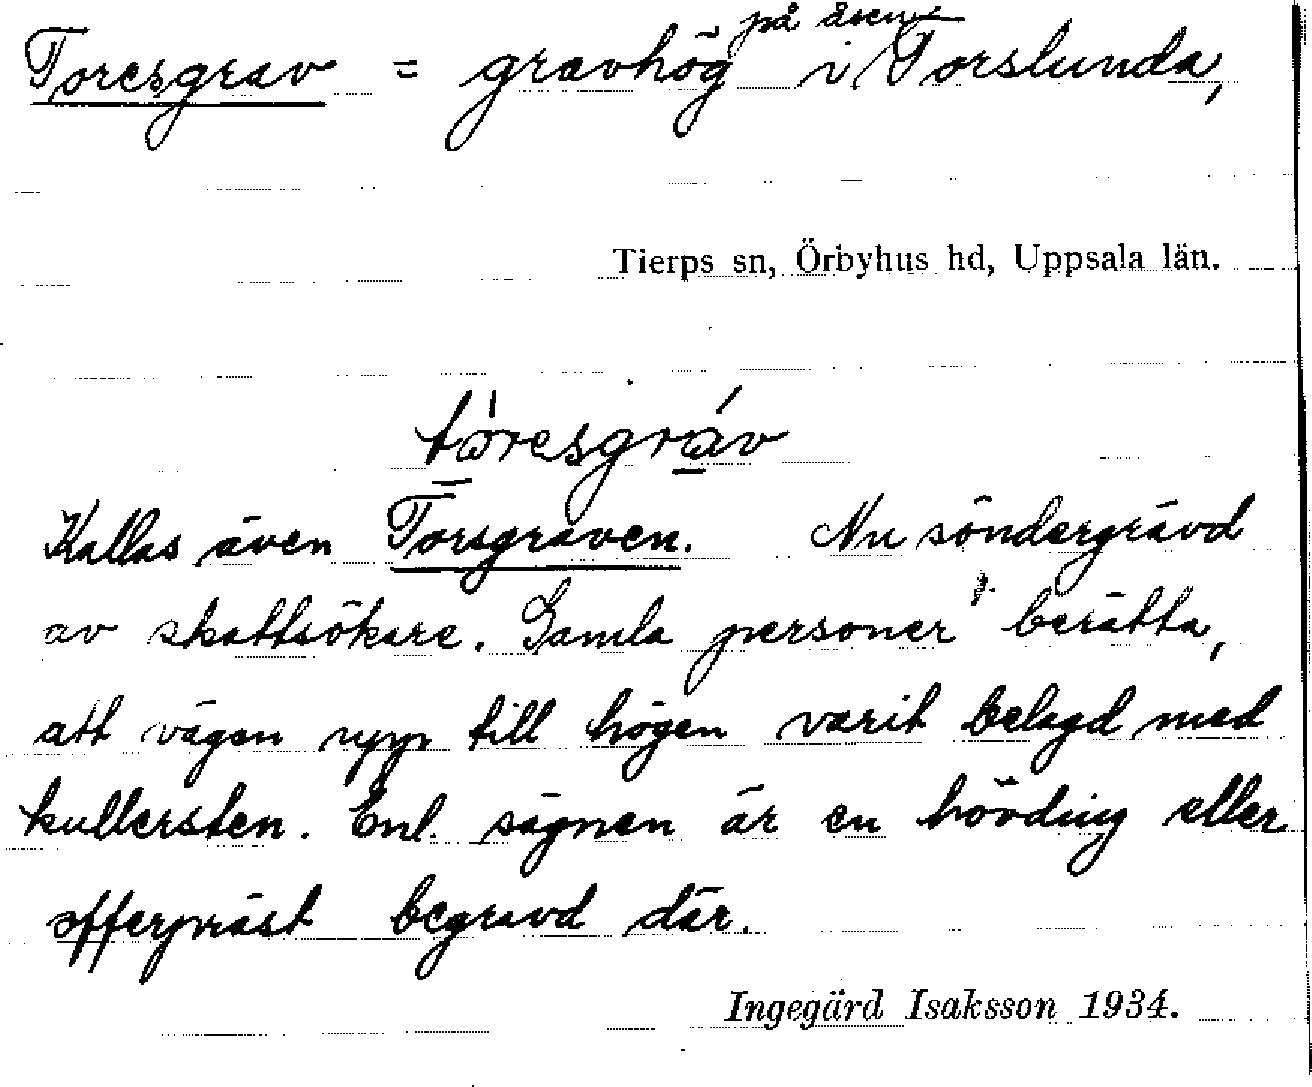 Toresgrav = gravhög på åsen i Torslunda,
Tierps sn, Örbyhus hd, Uppsala län.
tåresgráv
Kallas även Torsgraven. Nu söndergrävd
av skattsökare. Gamla personer berätta,
att vägen upp till högen varit belagd med
kullersten. Enl. sägnen är en hövding eller
offerpräst begravd där.
Ingegärd Isaksson 1934.